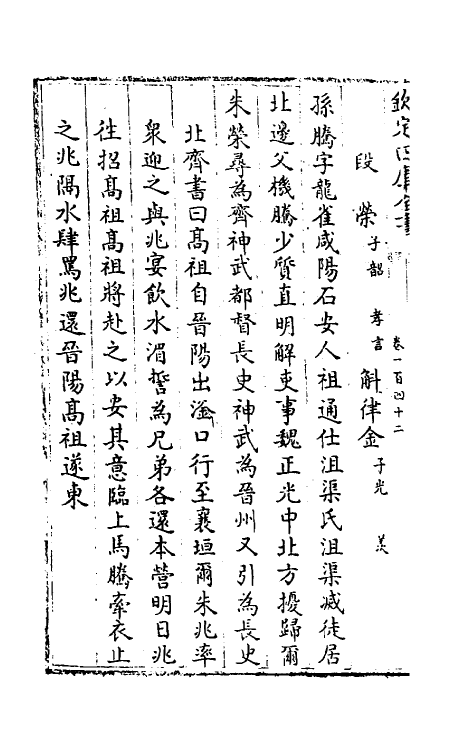 欽定四庫全書
卷一百四十二
段榮 子韶 孝言 斛律金 子光 羨
孫騰字龍雀咸陽石安人祖通仕沮渠氏沮渠滅徙居
北邊父機騰少質直明解吏事魏正光中北方擾歸爾
朱榮尋為齊神武都督長史神武為晉州又引為長史
北齊書曰髙祖自晉陽出滏口行至襄垣爾朱兆率
衆迎之與兆宴飲水湄誓為兄弟各還本營明日兆
徃招髙祖髙祖將赴之以安其意臨上馬騰牽衣止
之兆隔水肆罵兆還晉陽髙祖遂東